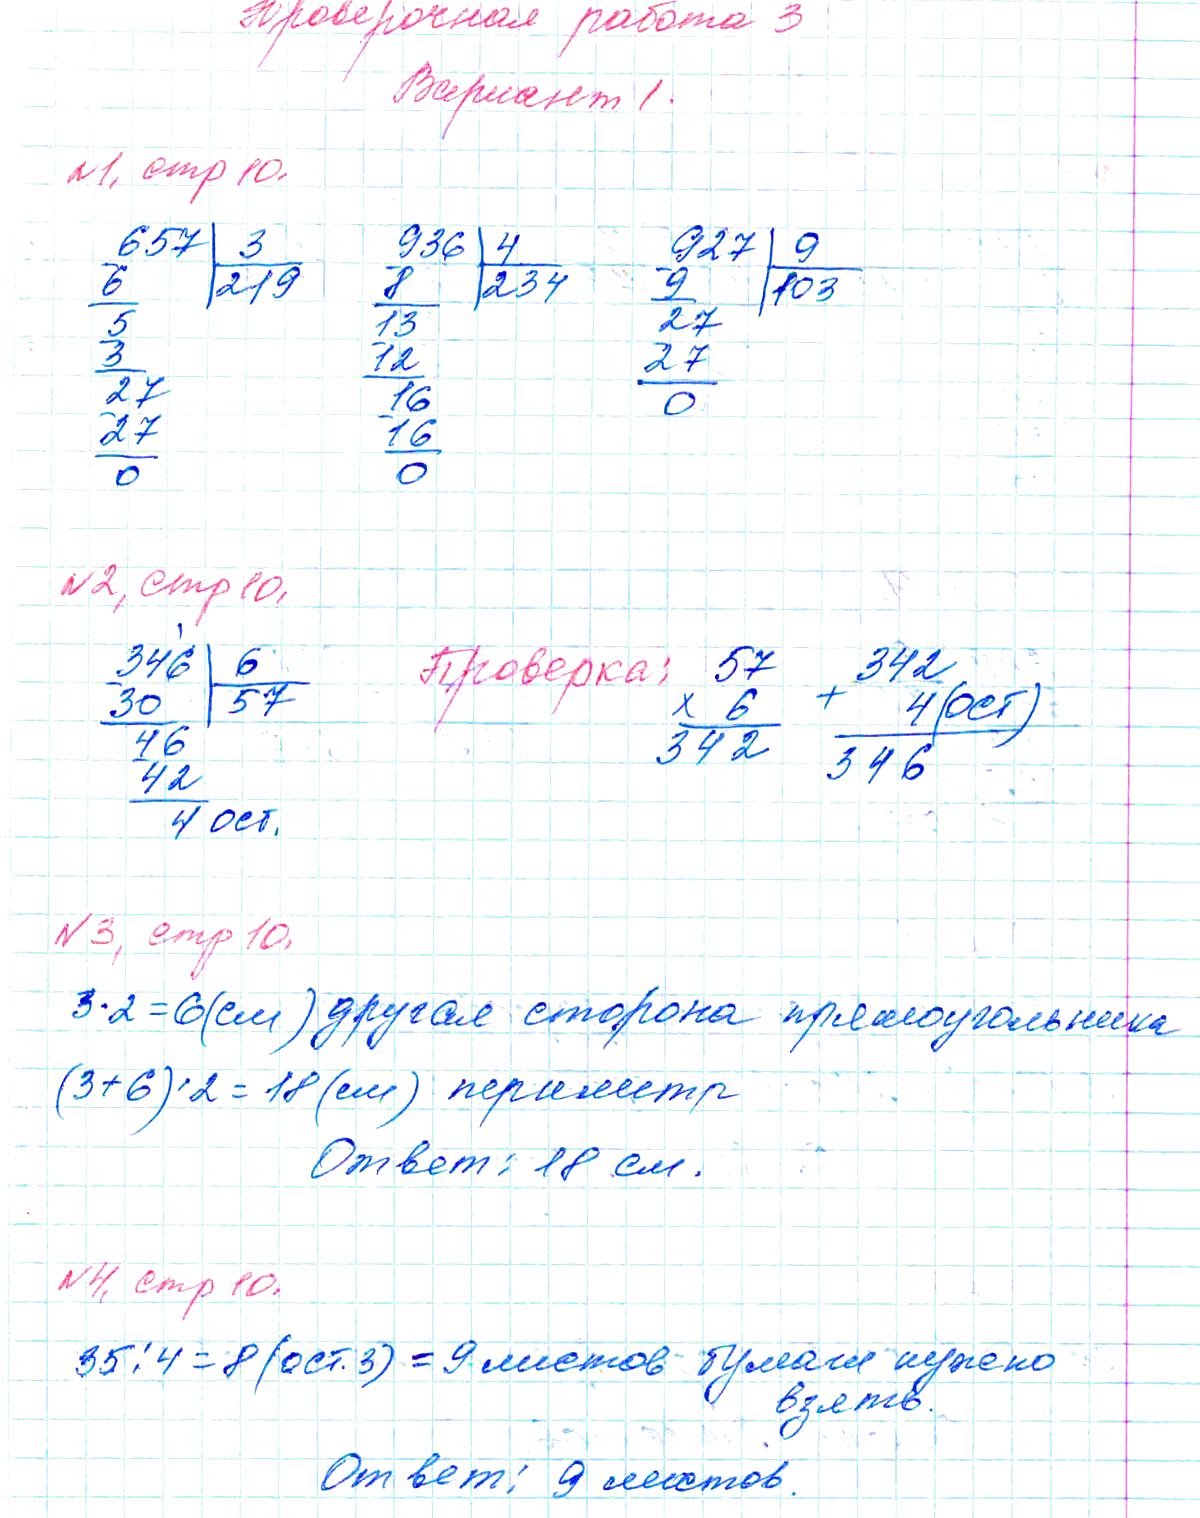 Проверочная работа 3
Вариант 1.
№1, стр 10.
657 | 3
6 | 219
5
3
27
27
0
936 | 4
8 | 234
13
12
16
16
0
927 | 9
9 | 103
27
27
0
№2, стр 10.
346 | 6
30 | 57
46
42
4 ост.
Проверка:
57
× 6
342
342
+ 4(ост)
346
№3, стр 10.
3·2=6(см) другая сторона прямоугольника
(3+6)·2=18(см) периметр
Ответ: 18 см.
№4, стр 10.
35:4=8(ост.3)=9 листов бумаги нужно
взять.
Ответ: 9 листов.